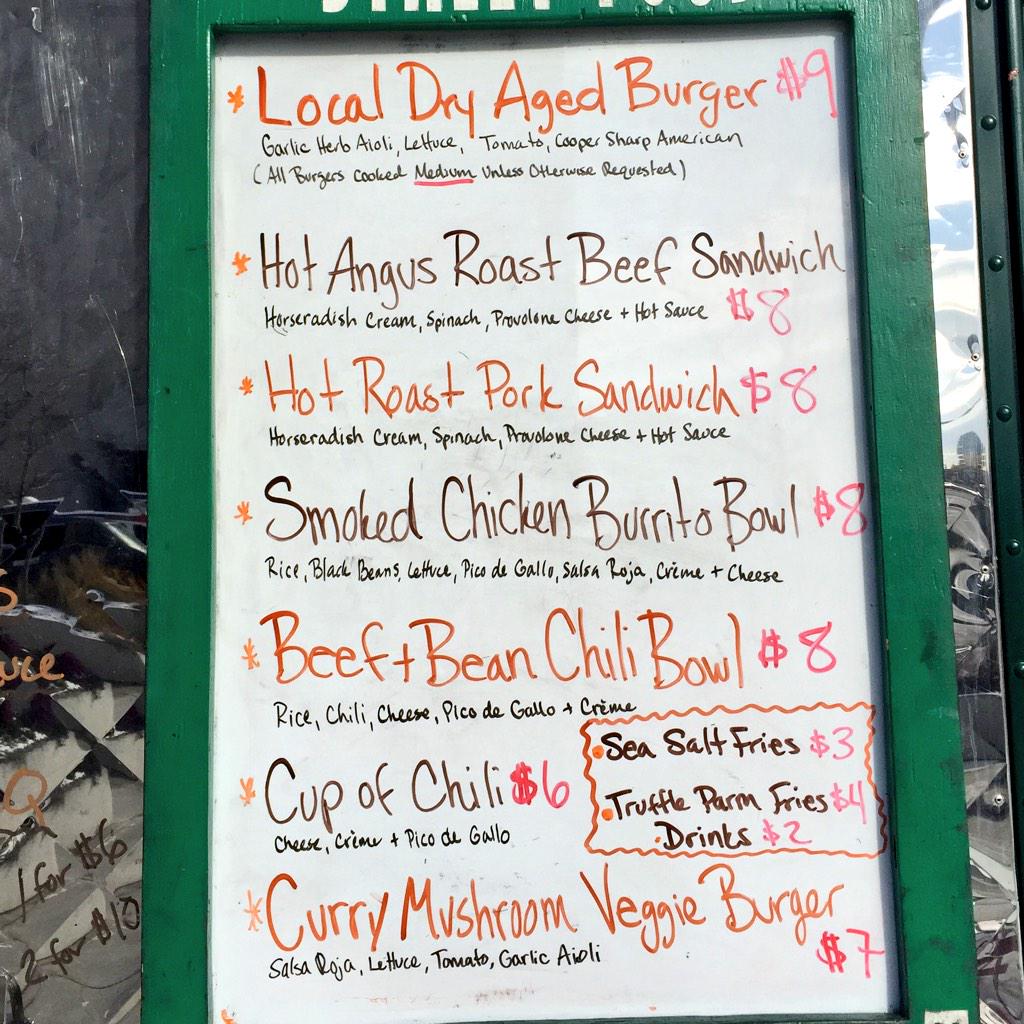 * Local Dry Aged Burger $9
Garlic Herb Aioli, Lettuce, Tomato, Cooper Sharp American
(All Burgers Cooked Medium Unless Otherwise Requested)
* Hot Angus Roast Beef Sandwich
Horseradish Cream, Spinach, Provolone Cheese + Hot Sauce $8
* Hot Roast Pork Sandwich $8
Horseradish Cream, Spinach, Provolone Cheese + Hot Sauce
* Smoked Chicken Burrito Bowl $8
Rice, Black Beans, Lettuce, Pico de Gallo, Salsa Roja, Crème + Cheese
* Beef + Bean Chili Bowl $8
Rice, Chili, Cheese, Pico de Gallo + Crème
* Cup of Chili $6
Cheese, Crème + Pico de Gallo
• Sea Salt Fries $3
• Truffle Parm Fries $4
• Drinks $2
* Curry Mushroom Veggie Burger
$7
Salsa Roja, Lettuce, Tomato, Garlic Aioli
1 for $6
2 for $10